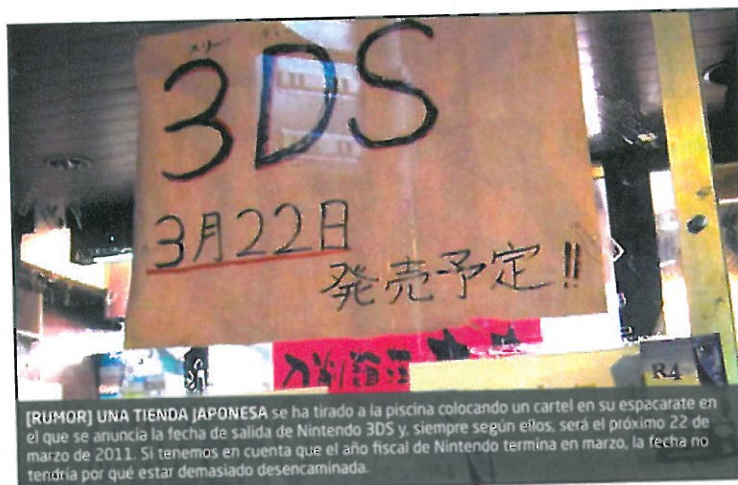 3DS
3月22日
発売予定!!
R4
[RUMOR] UNA TIENDA JAPONESA se ha tirado a la piscina colocando un cartel en su espacarate en
el que se anuncia la fecha de salida de Nintendo 3DS y, siempre según ellos, será el próximo 22 de
marzo de 2011. Si tenemos en cuenta que el año fiscal de Nintendo termina en marzo, la fecha no
tendría por qué estar demasiado desencaminada.